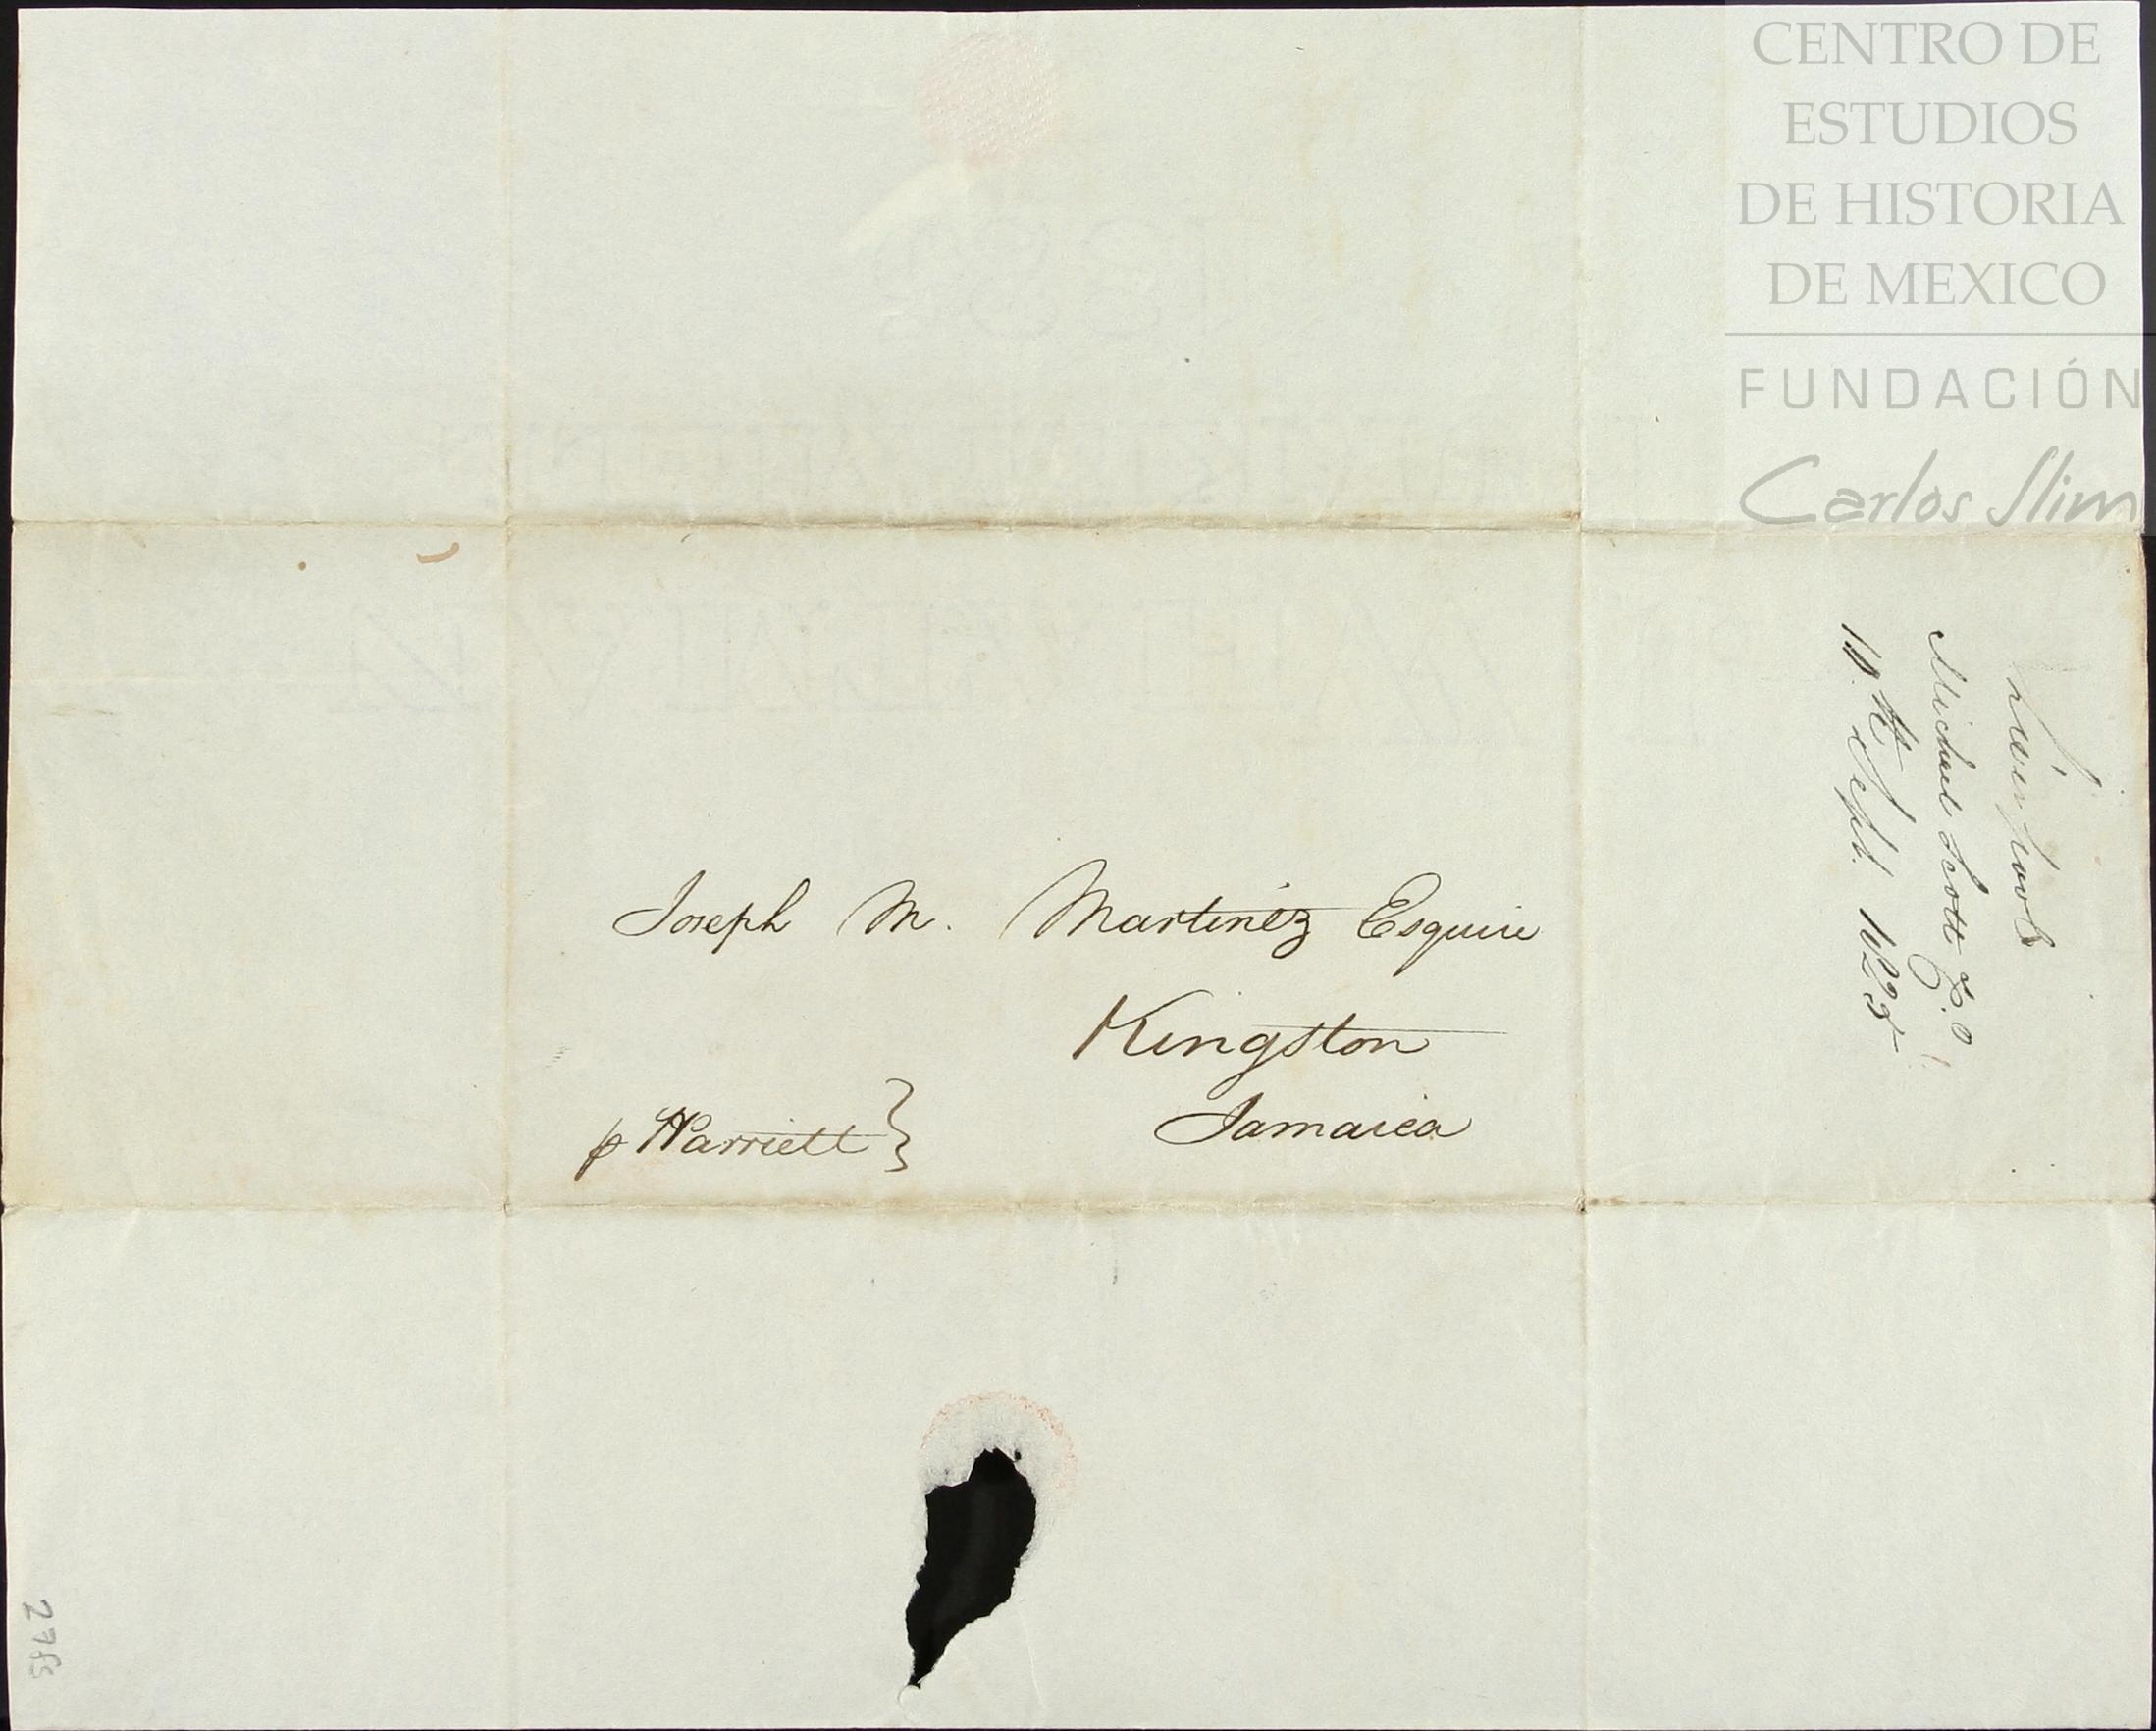 CENTRO DE
ESTUDIOS
DE HISTORIA
DE MEXICO
FUNDACIÓN
Carlos Slim
Liverpool
Michael Scott
10th Sept. 1823
Joseph M. Martinéz Esquire
Kingston
Jamaica
p Harriett}